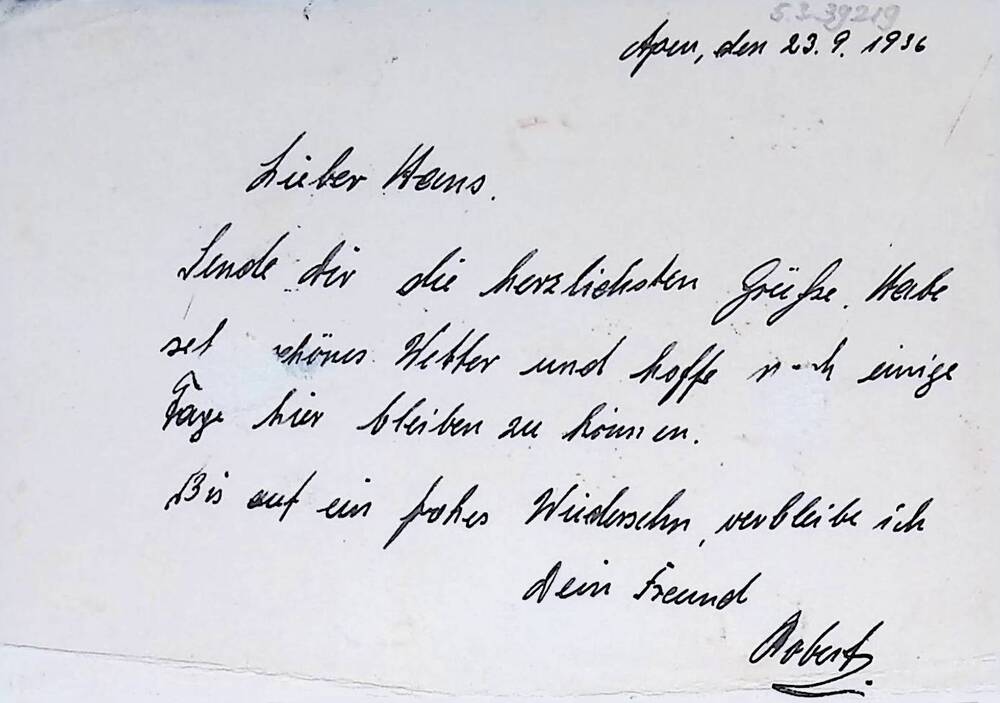 5.3-39219
Apen, den 23.9.1936
Lieber Hans.
Sende Dir die herzlichsten Grüße. Habe
schönes Wetter und hoffe noch einige
Tage hier bleiben zu können.
Bis auf ein frohes Wiedersehn, verbleibe ich
Dein Freund
Robert